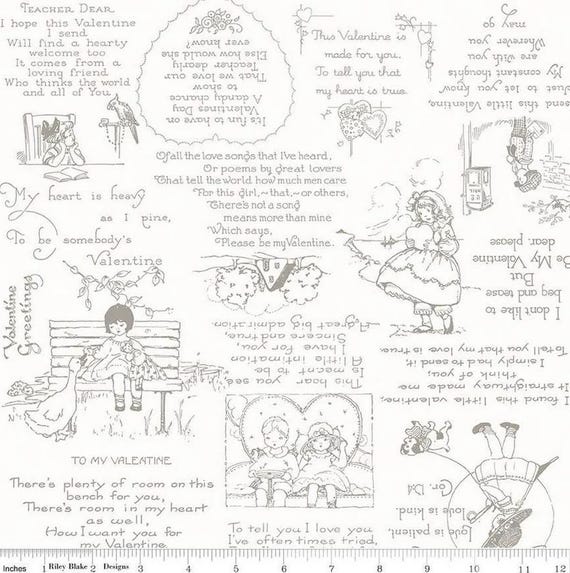 TEACHER DEAR
I hope this Valentine
I send
Will find a hearty
welcome too
It comes from a
loving friend
Who thinks the world
and all of You
It's fun to have on
Valentines Day
A dandy chance
to show
That we love our
Teacher dearly
Else how would she
ever know?
This Valentine is
made for you.
To tell you that
my heart is true.
send this little Valentine,
Just to let you know
My constant thoughts
are with you
Wherever you
may go
Of all the love songs that I've heard,
Or poems by great lovers
That tell the world how much men care
For this girl, that, or others,
There's not a song
means more than mine
Which says,
Please be my Valentine.
My heart is heavy
as I pine,
To be somebody's
Valentine
Valentine
Greetings
I don't like to
beg and tease
But
Be My Valentine
dear, please
This hear you see,
Is meant to be
A little intimation
I have for you,
Sincere and true,
A great big admiration
I found this little valentine,
It straightway made me
think of you,
I simply had to send it,
To tell you that my love is true.
TO MY VALENTINE
There's plenty of room on this
bench for you,
There's room in my heart
as well,
How I want you for
my Valentine
To tell you I love you
I've often times tried,
Love is patient,
love is kind.
Cr. D4
Inches 1 Riley Blake 2 Designs 3 4 5 6 7 8 9 10 11 12